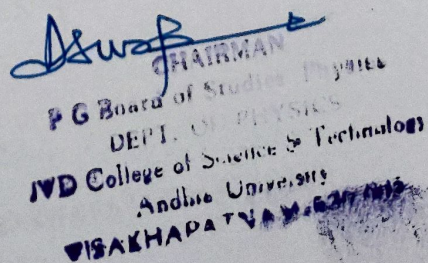 CHAIRMAN
P G Board of Studies Physics
DEPT. OF PHYSICS
JVD College of Science & Technology
Andhra University
VISAKHAPATNAM